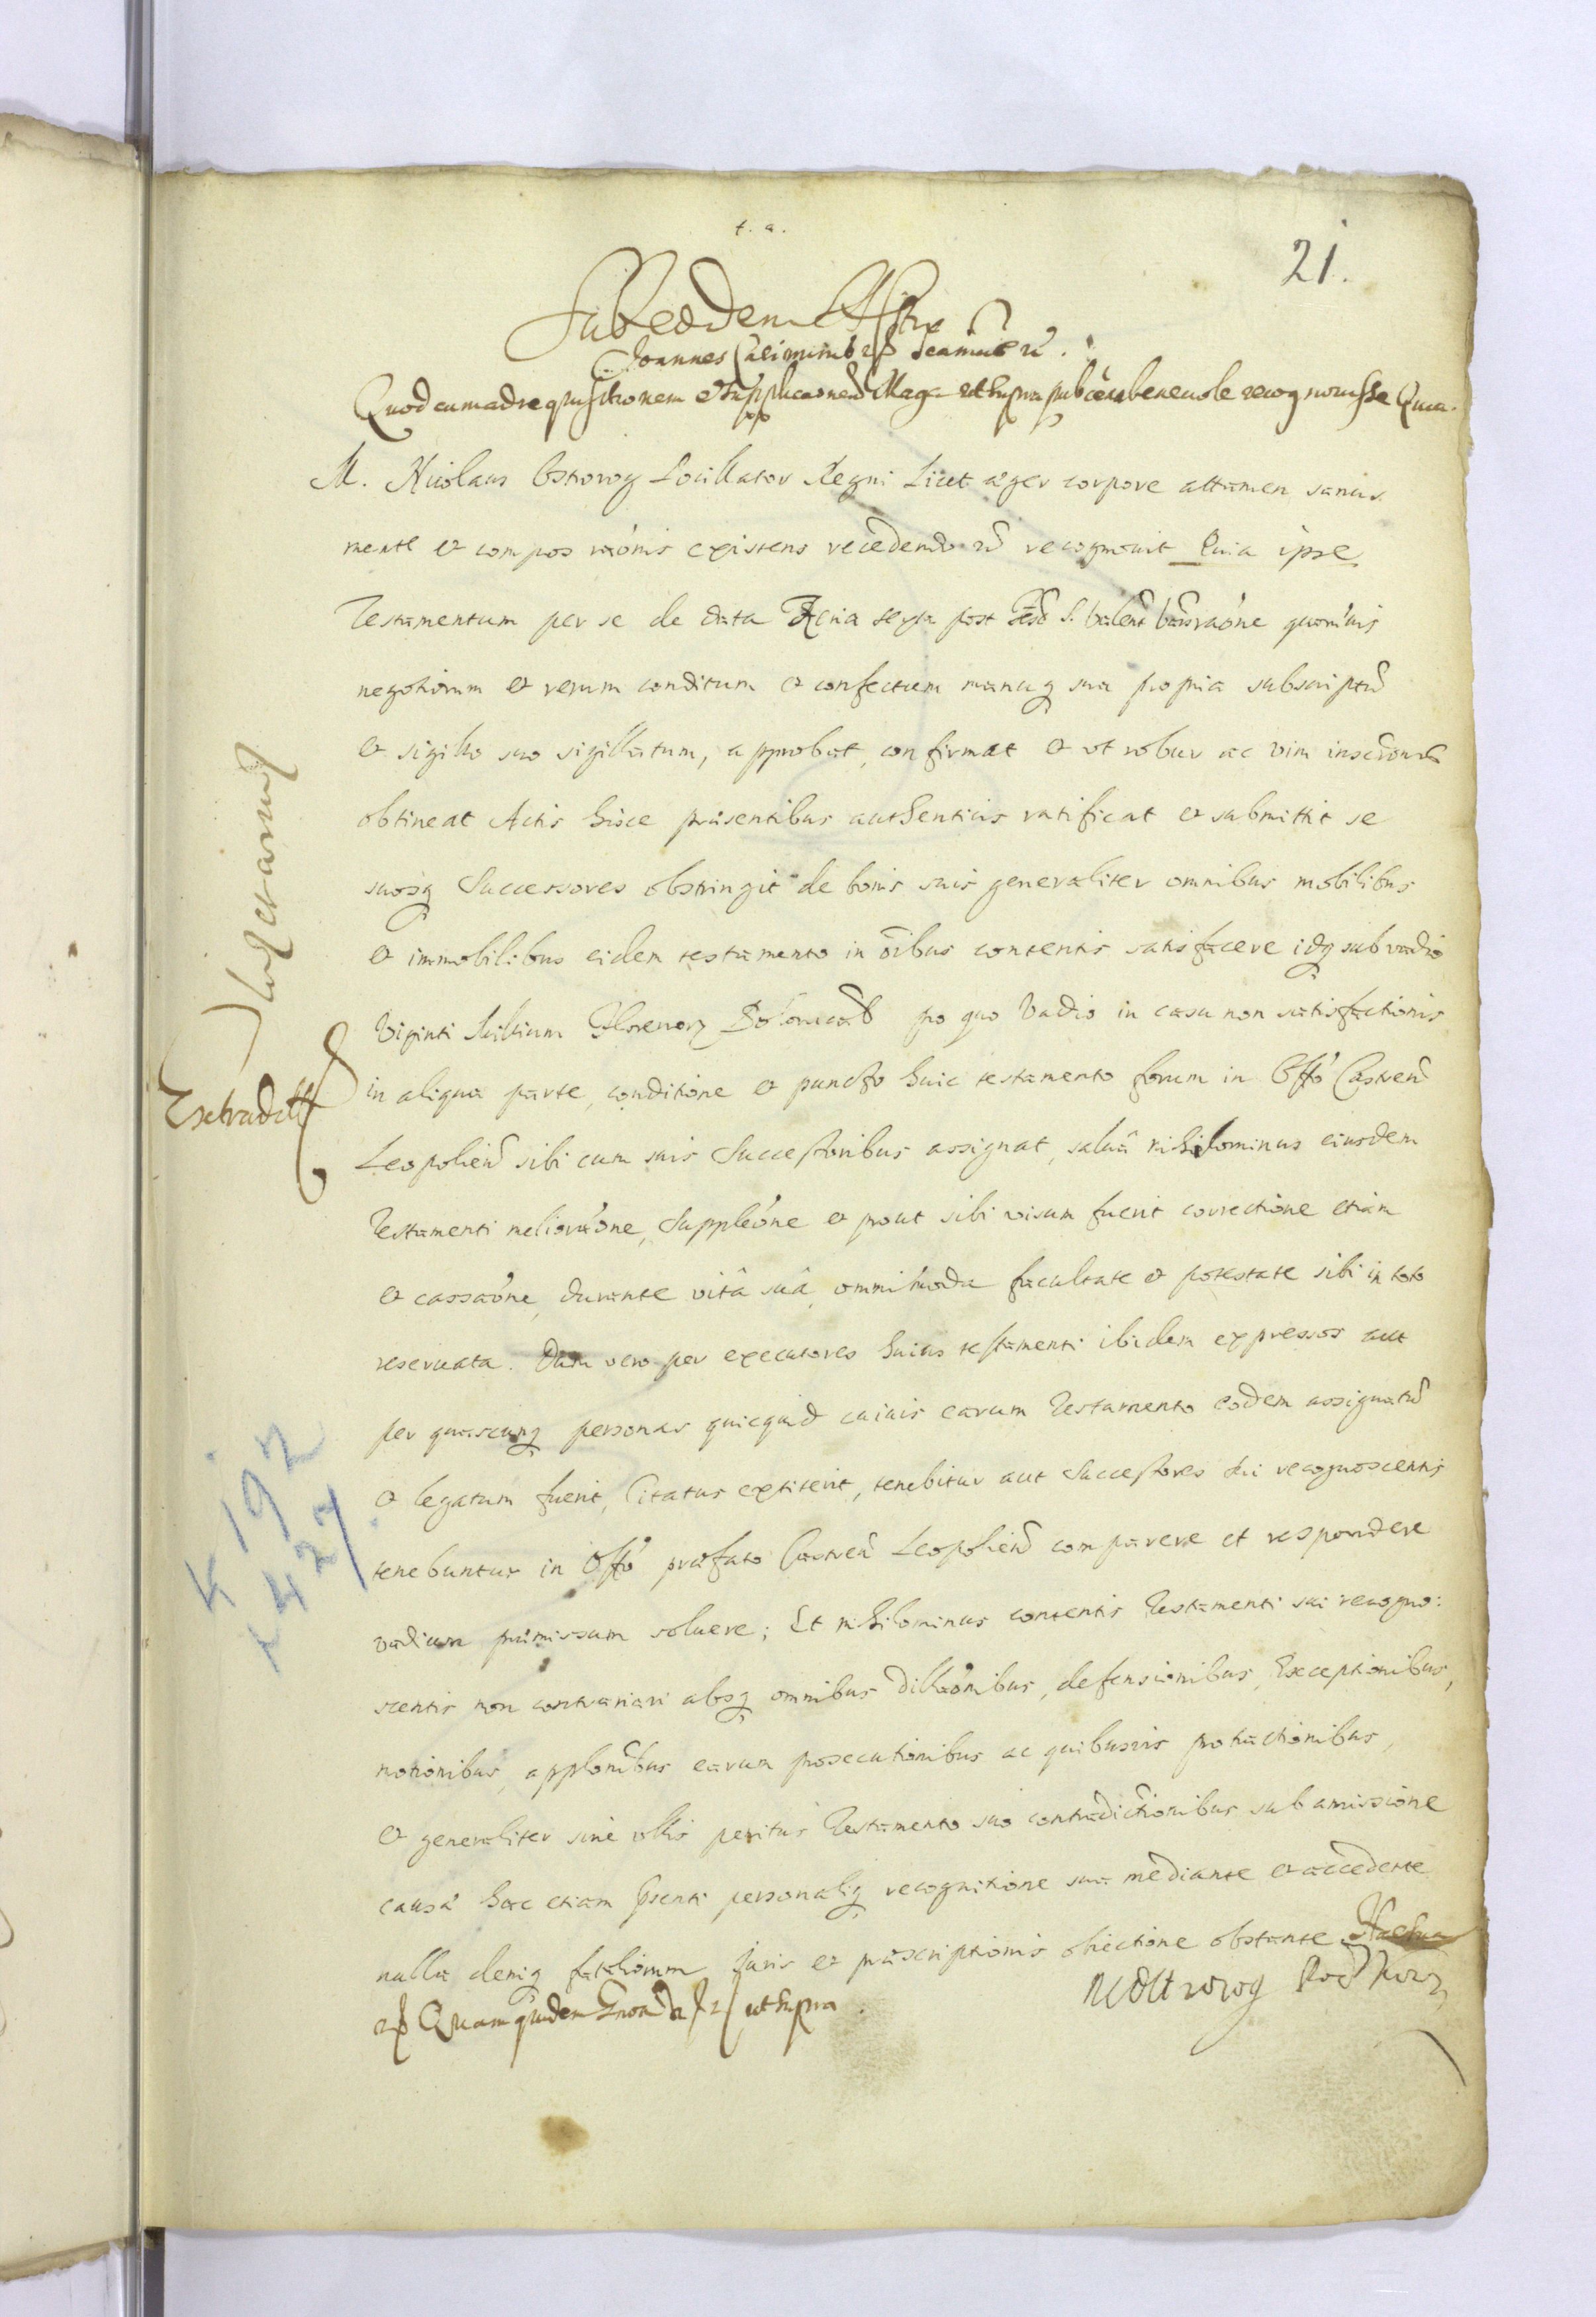 t. a.
21.
Sub eodem Actu
Joannes Casimirus
Quod cum ad requisitionem et supplicaonem Magci ut supra benevole recognovisse Quia
M. Nicolaus Ostrorog Pocillator Regni Licet æger corpore attamen sanus
mente et compos raónis existens recedendo recognouit Quia ipse
Testamentum per se de data Feria sexta post S. quoruuis
negotiorum et rerum conditum et confectum manuq sua propria subscriptū
et sigillo suo sigillatum, approbat, confirmat et ut robur ac vim
obtineat Actis hisce præsentibus authenticis ratificat et submittit se
suosq Successores obstringit de bonis suis generaliter omnibus mobilibus
et immobilibus eidem testamento in oībus contentis satisfacere idq sub vadio
Viginti Millium Florenor pro quo Vadio in casu non satisfactionis
in aliqua parte, conditione et puncto huic testamento forum in Offo Castren
Leopolien sibi cum suis Successoribus assignat, saluâ nihilominus eiusdem
Testamenti melioraóne, Suppleóne et prout sibi visum fuerit correctione etiam
et cassaóne, durante vitâ suâ, omnimoda facultate et potestate sibi in toto
reseruata. Dum vero per executores huius testamenti ibidem expressos aut
per quascunq personas quicquid cuiuis earum Testamento eodem assignatū
et legatum fuerit, Citatus extiterit, tenebitur aut Successores sui recognoscentis
tenebuntur in Offo præfato Castren Leopolien comparere et respondere
vadium præmissum soluere; Et nihilominus contentis Testamenti sui recogno:
scentis non contrariari absq omnibus dillaónibus, defensionibus, Exceptionibus,
motionibus, applonibus earum prosecutionibus ac quibusvis protractionibus,
et generaliter sine ullis penitus Testamento suo contradictionibus sub amissione
causæ hac etiam personaliq recognitione sua mediante et accedente
nulla deniq fataliorum Juris et præscriptionis obiectione obstante
Quam quidem ut supra.
NOstrorog Pod Kor
Extradit
K 192